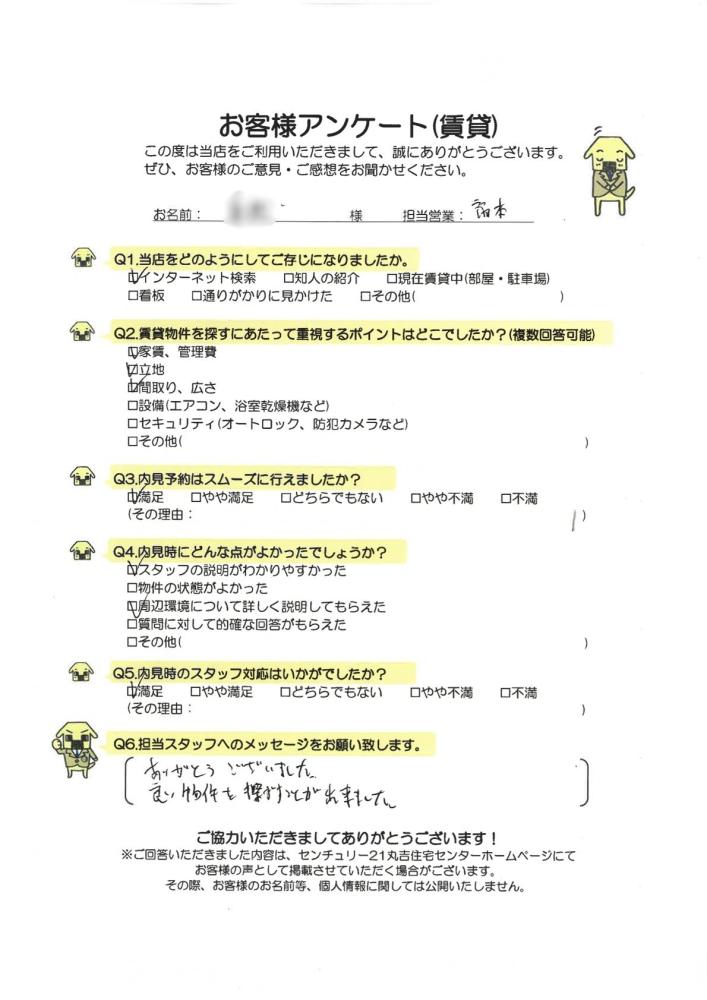 お客様アンケート(賃貸)
この度は当店をご利用いただきまして、誠にありがとうございます。
ぜひ、お客様のご意見・ご感想をお聞かせください。
お名前： 様 担当営業：
Q1.当店をどのようにしてご存じになりましたか。
☑インターネット検索 □知人の紹介 □現在賃貸中(部屋・駐車場)
□看板 □通りがかりに見かけた □その他( )
Q2.賃貸物件を探すにあたって重視するポイントはどこでしたか？(複数回答可能)
☑家賃、管理費
☑立地
☑間取り、広さ
□設備(エアコン、浴室乾燥機など)
□セキュリティ(オートロック、防犯カメラなど)
□その他( )
Q3.内見予約はスムーズに行えましたか？
☑満足 □やや満足 □どちらでもない □やや不満 □不満
(その理由： )
Q4.内見時にどんな点がよかったでしょうか？
☑スタッフの説明がわかりやすかった
□物件の状態がよかった
☑周辺環境について詳しく説明してもらえた
□質問に対して的確な回答がもらえた
□その他( )
Q5.内見時のスタッフ対応はいかがでしたか？
☑満足 □やや満足 □どちらでもない □やや不満 □不満
(その理由： )
Q6.担当スタッフへのメッセージをお願い致します。
ありがとうございました。
良い物件を探すことが出来ました。
ご協力いただきましてありがとうございます！
※ご回答いただきました内容は、センチュリー21丸吉住宅センターホームページにて
お客様の声として掲載させていただく場合がございます。
その際、お客様のお名前等、個人情報に関しては公開いたしません。